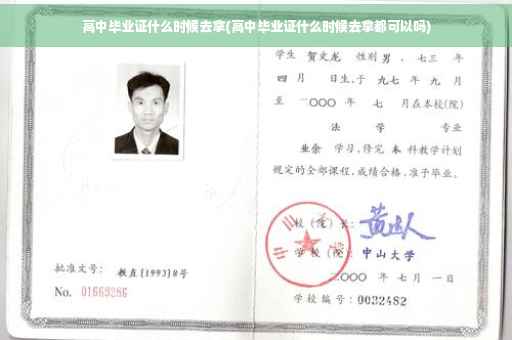 高中毕业证什么时候去拿(高中毕业证什么时候去拿都可以吗)
学生 贺文龙 性别 男 、七三 年
四 月 日生,于 九七 年 九 月
至 二OOO 年 七 月在本校(院)
法 学 专业
业余 学习,修完 本 科教学计划
规定的全部课程,成绩合格,准予毕业。
校(院)长:
学校(院): 中山大学
二OOO 年 七 月 一 日
批准文号: 教直(1993)8号
No. 01663286
学校编号: 0032482